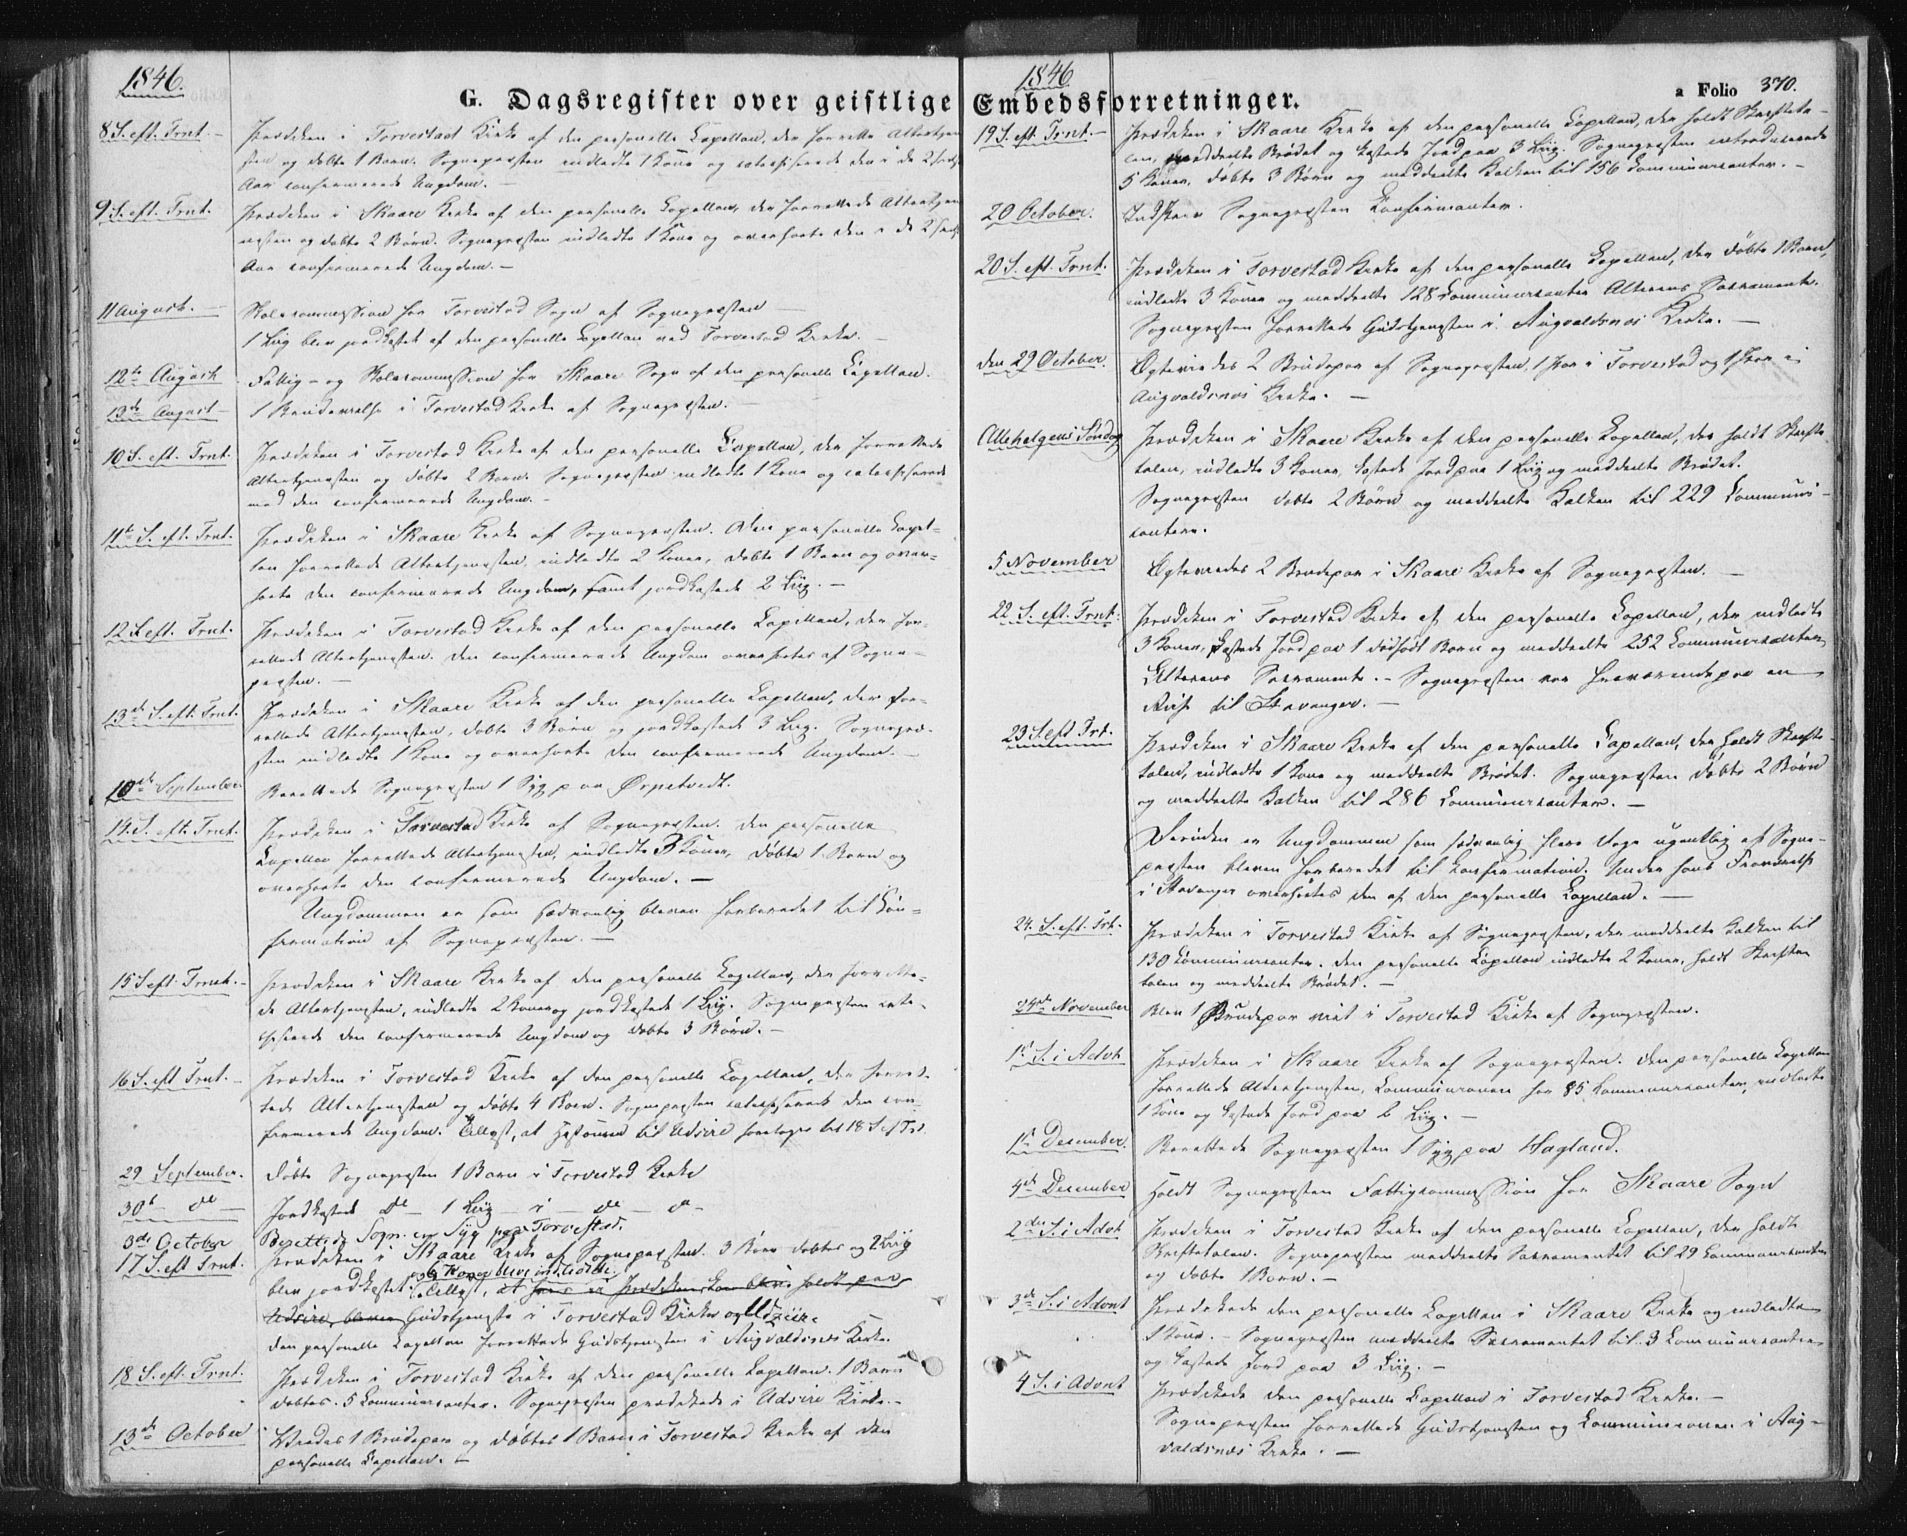 1846.
G. Dagsregister over geistlige
8 S. eft. Trnt. Prædiken i Torvestad Kirke af den personelle Capellan, der forrettede Altertjene-
sten og døbte 1 Barn. Sognepræsten indledte 1 Kone og catechiserede den i de 2 sidste
Aar confirmerede Ungdom. –
9 S. eft. Trnt. Prædiken i Skaare Kirke af den personelle Capellan, der forrettede Altertjen
nesten og døbte 2 Børn. Sognepræsten indledte 1 Kone og overhørte den i de 2 sidste
Aar confirmerede Ungdom. –
11 August. – Skolecommission for Torvestad Sogn af Sognepræsten –
1 Liig blev jordkastet af den personelle Capellan ved Torvestad Kirke. –
12te August Fattig- og Skolecommission for Skaare Sogn af den personelle Capellan.
13de August – 1 Brudevielse i Torvestad Kirke af Sognepræsten. –
10 S. eft. Trnt. Prædiken i Torvestad Kirke af den personelle Capellan, der forrettede
Altertjenesten og døbte 2 Børn. Sognepræsten indledte 1 Kone og catechiserede
med den confirmerede Ungdom. –
11te S. eft. Trnt. Prædiken i Skaare Kirke af Sognepræsten. Den personelle Capel-
lan forrettede Altertjenesten, indledte 2 Koner, døbte 1 Barn og over-
hørte den confirmerede Ungdom, samt jordkastede 2 Liig. –
12 S. eft. Trnt. Prædiken i Torvestad Kirke af den personelle Capellan, der for-
rettede Altertjenesten. Den confirmerede Ungdom overhørtes af Sogne-
præsten. –
13de S. eft. Trnt. Prædiken i Skaare Kirke af den personelle Capellan, der for-
rettede Altertjenesten, døbte 3 Børn og jordkastede 3 Liig. Sognepræ-
sten indledte 1 Kone og overhørte den confirmerede Ungdom. –
10de September Berettede Sognepræsten 1 Syg paa Ørpetvedt.
14. S. eft. Trnt. Prædiken i Torvestad Kirke af Sognepræsten. Den personelle
Capellan forrettede Altertjenesten, indledte 3 Koner, døbte 1 Barn og
overhørte den confirmerede Ungdom. –
Ungdommen er som sædvanlig bleven forberedet til Con-
firmation af Sognepræsten. –
15 S. eft. Trnt. – Prædiken i Skaare Kirke af den personelle Capellan, der forrette-
de Altertjenesten, indledte 2 Koner og jordkastede 1 Liig. Sognepræsten cate-
chiserede den confirmerede Ungdom og døbte 3 Børn. –
16 S. eft. Trnt. – Prædiken i Torvestad Kirke af den personelle Capellan, der forret-
tede Altertjenesten og døbte 4 Børn. Sognepræsten catechiserede den con-
firmerede Ungdom. Tillyst, at til Udsire foretages til 18 S. ef Tr.
29 September. Døbte Sognepræsten 1 Barn i Torvestad Kirke
30te – do – Jordkastede do – 1 Liig – i – do – do –
3die October Berettede Sogn. en Syg paa Torvestad.
17 S. eft. Trnt. Prædiken i Skaare Kirke af Sognepræsten. 3 Børn døbtes og 2 Liig
blev jordkastet. og 6 Koner bleve indledte. Tillyst, at Prædiken kan blive holdt paa
Udsire, bliver Gudstjeneste i Torvestad Kirke og Udsire.
Den personelle Capellan forrettede Gudstjenesten i Augvaldsnes Kirke.
18 S. eft. Trnt. Prædiken i Torvestad Kirke af den personelle Capellan. 1 Barn
døbtes. 5 Communicanter. Sognepræsten prædikede i Udsire Kirke. –
13de October Viedes 1 Brudepar og døbtes 1 Barn i Torvestad Kirke af den
personelle Capellan. –
1846
Embedsforretninger.
a Folio 370.
19 S. eft. Trnt. – Prædiken i Skaare Kirke af den personelle Capellan, der holdt Skrifteta-
len, meddeelte Brødet og kastede Jord paa 3 Liig. Sognepræsten introducerede
5 Koner, døbte 3 Børn og meddeelte Kalken til 156 Communicanter. –
20 October. Indskrev Sognepræsten Confirmanter.
20 S. eft. Trnt. Prædiken i Torvestad Kirke af den personelle Capellan, der døbte 1 Barn,
indledte 3 Koner og meddeelte 128 Communicanter Alterens Sacramente.
Sognepræsten forrettede Gudstjenesten i Augvaldsnes Kirke. –
den 29 October. Egtevieedes 2 Brudepar af Sognepræsten, 1 Par i Torvestad og 1 Par i
Augvaldsnes Kirke. –
Allehelgens Søndag Prædiken i Skaare Kirke af den personelle Capellan, der holdt Skrifte
talen, indledte 3 Koner, kastede Jord paa 1 Liig og meddeelte Brødet.
Sognepræsten døbte 2 Børn og meddeelte Kalken til 229 Communi-
canter.
5 November Egteviedes 2 Brudepar i Skaare Kirke af Sognepræsten. –
22 S. eft. Trnt: Prædiken i Torvestad Kirke af den personelle Capellan, der indledte
3 Koner, kastede Jord paa 1 dødfødt Barn og meddeelte 252 Communicanter
Alterens Sacramente. – Sognepræsten var fraværende paa en
Reise til Stavanger. –
23 S. eft Trt. Prædiken i Skaare Kirke af den personelle Capellan, der holdt Skrifte-
talen, indledte 1 Kone og meddeelte Brødet. Sognepræsten døbte 2 Børn
og meddeelte Kalken til 286 Communicanter. –
Desuden er Ungdommen som sædvanlig flere Dage ugentlig af Sogne-
præsten bleven forberedet til Confirmation. Under hans Fraværelse
i Stavanger overhørtes den af den personelle Capellan. –
24. S. eft. Trt. Prædiken i Torvestad Kirke af Sognepræsten, der meddeelte Kalken til
130 Communicanter. Den personelle Capellan indledte 2 Koner, holdt Skrifte
talen og meddeelte Brødet. –
24de November Blev 1 Brudepar viet i Torvestad Kirke af Sognepræsten.
1ste S. i Advt. Prædiken i Skaare Kirke af Sognepræsten. Den personelle Capellan
forrettede Altertjenesten, Communionen for 85 Communicanter, indledte
1 Kone og kastede Jord paa 6 Liig. –
1ste December. Berettede Sognepræsten 1 Syg paa Hagland.
4de December Holdt Sognepræsten Fattigcommission for Skaare Sogn
2den S. i Advt Prædiken i Torvestad Kirke af den personelle Capellan, der holdt
Skriftetalen. Sognepræsten meddeelte Sacramentet til 29 Communicanter
og døbte 1 Barn. –
3de S. i Advent Prædikede den personelle Capellan i Skaare Kirke og indledte
1 Kone. – Sognepræsten meddeelte Sacramentet til 3 Communicanter
og kastede Jord paa 3 Liig. –
4 S. i Advent Prædikede den personelle Capellan i Torvestad Kirke. –
Sognepræsten forrettede Gudstjenesten og Communionen i Aug-
valdsnes Kirke. –